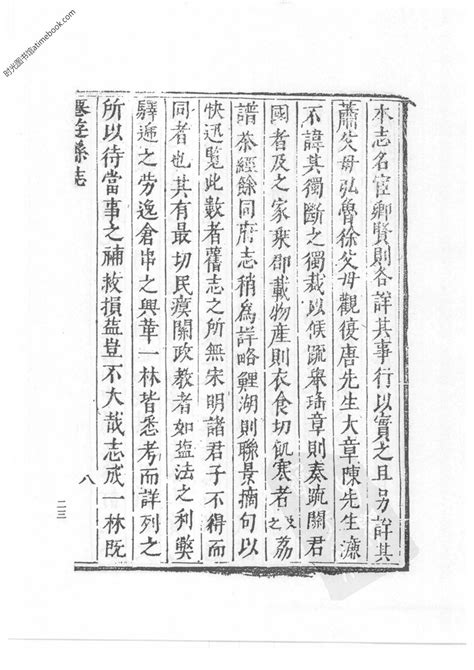 时光图书馆atimebook.com
本志名宦鄉賢則各詳其事行以實之且另詳其
蕭父母弘魯徐父母觀復唐先生大章陳先生濂
不諱其獨斷之獨裁以俟疏舉瑤章則奏疏關君
國者及之家乘郡載物產則衣食切飢寒者及之荔
譜茶經餘同府志稍為詳略鯉湖則聯景摘句以
快迅覽此數者舊志之所無宋明諸君子不得而
同者也其有最切民瘼關政教者如鹽法之利獘
驛遞之勞逸倉串之興革一林皆悉考而詳列之
所以待當事之補救損益豈不大哉志成一林既
縣志
八
二三